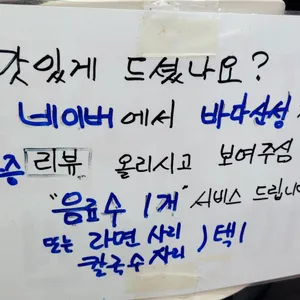 맛있게 드셨나요?
네이버에서 바다산성
증 리뷰 올리시고 보여주심
"음료수 1개" 서비스 드립니
또는 라면 사리 ) 택1
칼국수 사리